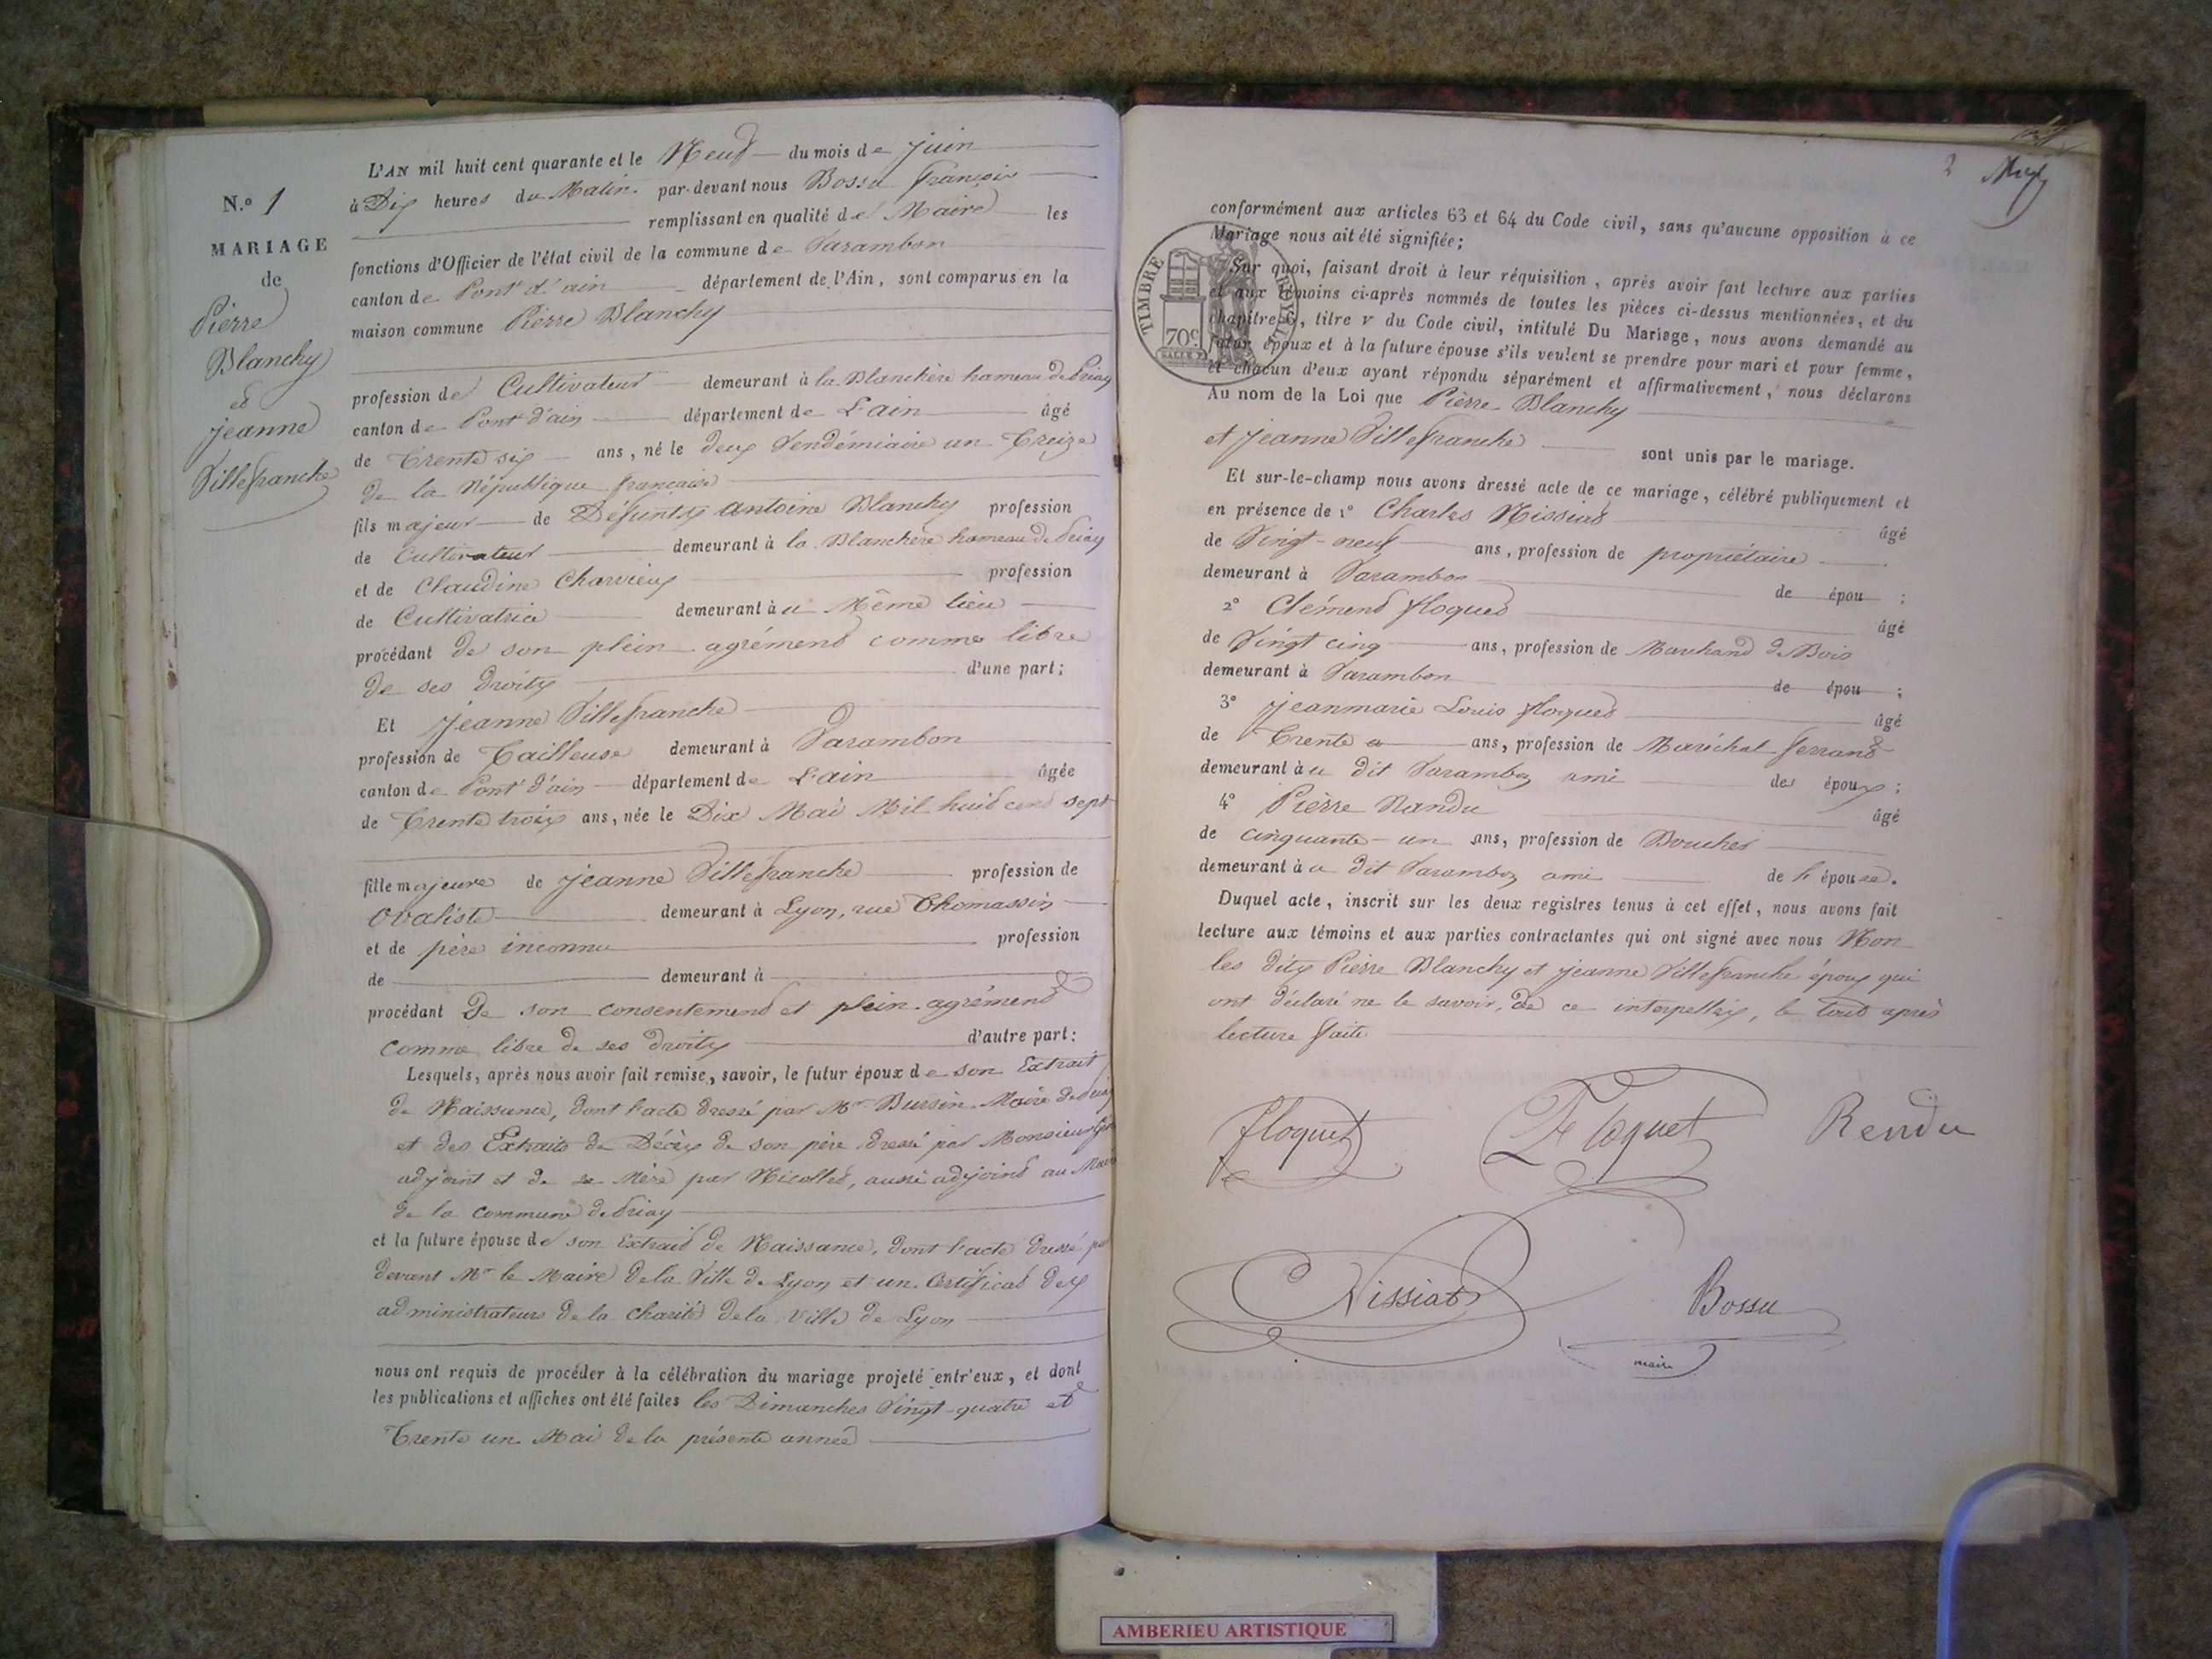 N.º 1
MARIAGE
de
Pierre
Blanchy
et
jeanne
Villefranche
L'AN mil huit cent quarante et le Neuf du mois de juin
à Dix heures du Matin par-devant nous Bossu françois
remplissant en qualité de Maire les
fonctions d'Officier de l'état civil de la commune de Varambon
canton de Pont d'ain département de l'Ain, sont comparus en la
maison commune Pierre Blanchy
profession de Cultivateur demeurant à la Blanchère hameau de Priay
canton de Pont d'ain département de L'ain âgé
de Trente six ans, né le deux Vendémiaire an Treize
de la République française
fils majeur de Défunts Antoine Blanchy profession
de Cultivateur demeurant à la Blanchère hameau de Priay
et de Claudine Charvieux profession
de Cultivatrice demeurant à u Même lieu
procédant de son plein agrément comme libre
de ses droits d'une part;
Et jeanne Villefranche
profession de Tailleuse demeurant à Varambon
canton de Pont d'ain département de L'ain âgée
de Trente trois ans, née le Dix Mai Mil huit cent sept
fille majeure de jeanne Villefranche profession de
Ovaliste demeurant à Lyon, rue Thomassin
et de père inconnu profession
de demeurant à
procédant de son consentement et plein agrément
comme libre de ses droits d'autre part:
Lesquels, après nous avoir fait remise, savoir, le futur époux de son Extrait
de Naissance, dont l'acte dressé par Mr. Maire de Priay
et des Extraits de Décès de son père dressé par Monsieur
adjoint et de sa Mère par Nicollet, aussi adjoint au Maire
de la commune de Priay
et la future épouse de son Extrait de Naissance, dont l'acte dressé par
devant Mr le Maire de la Ville de Lyon et un Certificat des
administrateurs de la charité de la Ville de Lyon
nous ont requis de procéder à la célébration du mariage projeté entr'eux, et dont
les publications et affiches ont été faites les Dimanches Vingt-quatre et
Trente un Mai de la présente année
2
TIMBRE ROYAL
70c
conformément aux articles 63 et 64 du Code civil, sans qu'aucune opposition à ce
Mariage nous ait été signifiée;
Sur quoi, faisant droit à leur réquisition, après avoir fait lecture aux parties
et aux témoins ci-après nommés de toutes les pièces ci-dessus mentionnées, et du
chapitre 6, titre v du Code civil, intitulé Du Mariage, nous avons demandé au
futur époux et à la future épouse s'ils veulent se prendre pour mari et pour femme,
et chacun d'eux ayant répondu séparément et affirmativement, nous déclarons
Au nom de la Loi que Pierre Blanchy
et jeanne Villefranche sont unis par le mariage.
Et sur-le-champ nous avons dressé acte de ce mariage, célébré publiquement et
en présence de 1º Charles Nissiat âgé
de Vingt-neuf ans, profession de propriétaire
demeurant à Varambon de épou ;
2º Clément floquet âgé
de Vingt cinq ans, profession de Marchand de Bois
demeurant à Varambon de épou ;
3º jeanmarie Louis floquet âgé
de Trente ans, profession de Maréchal ferrand
demeurant à u dit Varambon ami des époux ;
4º Pierre Randu âgé
de cinquante-un ans, profession de Boucher
demeurant à u dit Varambon ami de l'épouse.
Duquel acte, inscrit sur les deux registres tenus à cet effet, nous avons fait
lecture aux témoins et aux parties contractantes qui ont signé avec nous Non
les dits Pierre Blanchy et jeanne Villefranche époux qui
ont déclaré ne le savoir, de ce interpellés, le tout après
lecture faite
floquet
Floquet
Rendu
Nissiat
Bossu
maire
AMBERIEU ARTISTIQUE